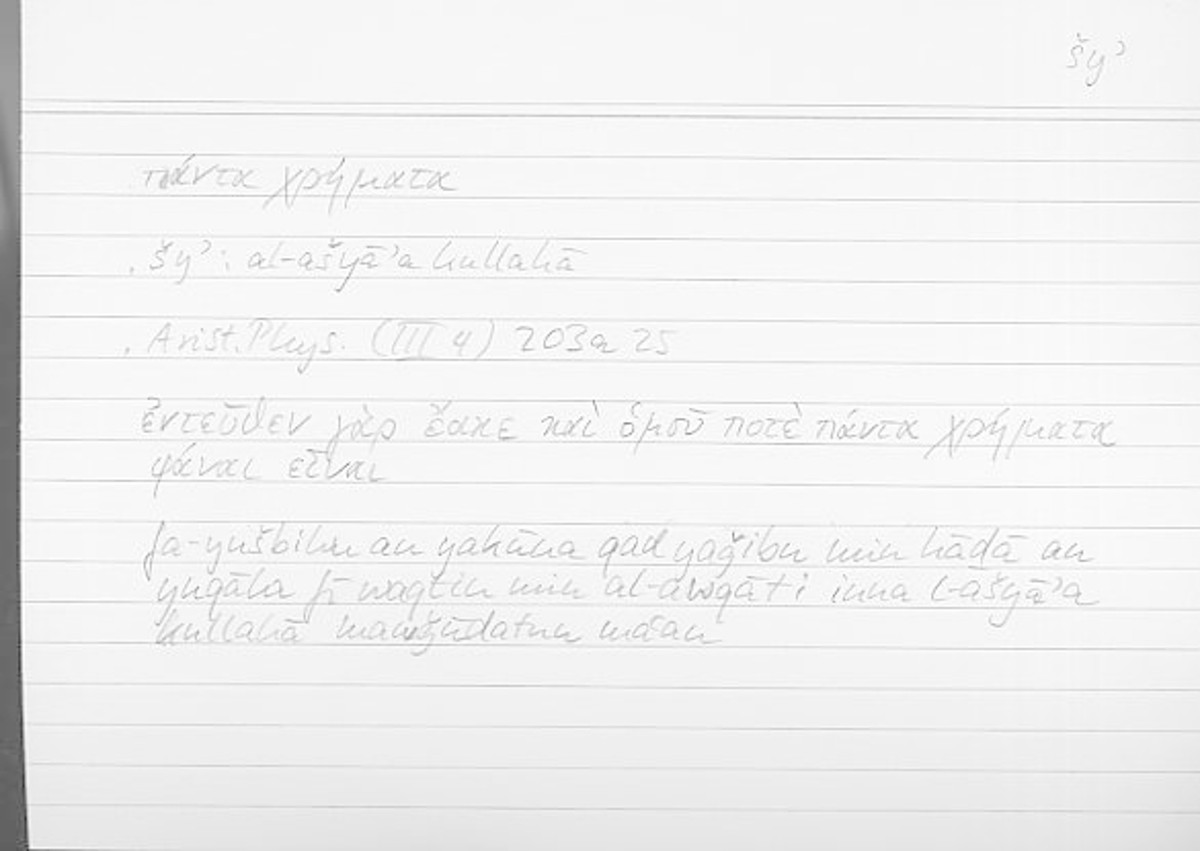 šyʾ
πάντα χρήματα
. šyʾ : al-ašyāʾa kullahā
. Arist. Phys. (III 4) 203a 25
ἐντεῦθεν γὰρ ἔοικε καὶ ὁμοῦ ποτὲ πάντα χρήματα
φάναι εἶναι
fa-yušbihu an yakūna qad yaǧibu min hāḏā an
yuqāla fī waqtin min al-awqāti inna l-ašyāʾa
kullahā mawǧūdatun maʿan